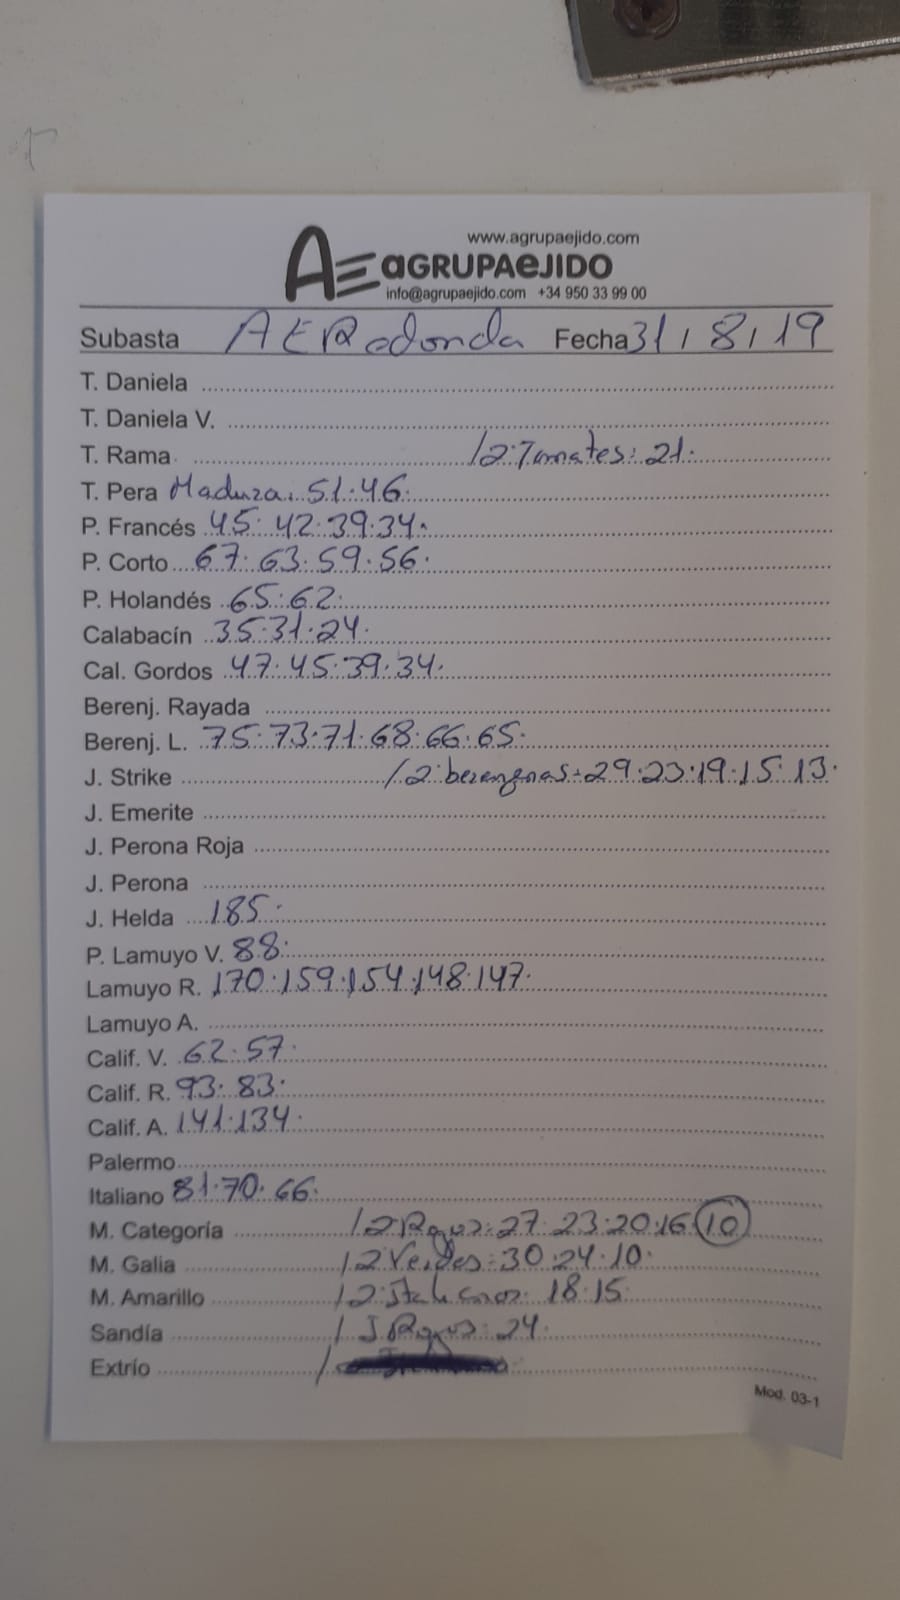 www.agrupaejido.com
AE aGRUPAeJIDO
info@agrupaejido.com +34 950 33 99 00
Subasta AE Redonda Fecha 31/8/19
T. Daniela
T. Daniela V.
T. Rama /2ª Tomates: 21.
T. Pera Madura. 51.46.
P. Francés 45.42.39.34.
P. Corto 67.63.59.56.
P. Holandés 65.62.
Calabacín 35.31.24.
Cal. Gordos 47.45.39.34.
Berenj. Rayada
Berenj. L. 75.73.71.68.66.65.
J. Strike /2ª berengenas: 29.23.19.15.13.
J. Emerite
J. Perona Roja
J. Perona
J. Helda 185.
P. Lamuyo V. 88.
Lamuyo R. 170.159.154.148.147.
Lamuyo A.
Calif. V. 62.57.
Calif. R. 93.83.
Calif. A. 141.134.
Palermo
Italiano 81.70.66.
M. Categoría /2ª Rojos: 27.23.20.16 10
M. Galia /2ª Verdes: 30.24.10.
M. Amarillo /2ª Italianos: 18.15.
Sandía / J Rojos: 24.
Extrío /
Mod. 03-1